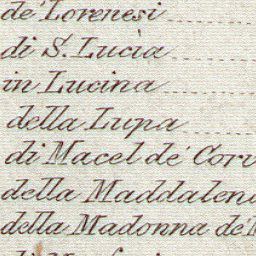 de' Lorenesi
di S. Lucìa
in Lucina
della Lupa
di Macel de' Corv
della Maddalena
della Madonna de'